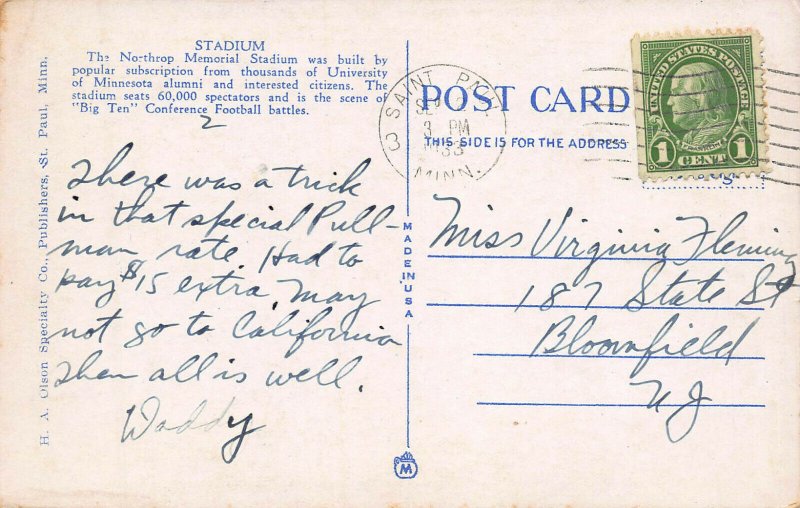 STADIUM
The Northrop Memorial Stadium was built by
popular subscription from thousands of University
of Minnesota alumni and interested citizens. The
stadium seats 60,000 spectators and is the scene of
"Big Ten" Conference Football battles.
2
There was a trick
in that special Pull-
man rate. Had to
pay $15 extra. May
not go to California
then all is well.
Waddy
H. A. Olson Specialty Co., Publishers, St. Paul, Minn.
MADE IN USA
M
POST CARD
THIS SIDE IS FOR THE ADDRESS
SAINT PAUL
3 PM
MINN.
3
UNITED STATES POSTAGE
FRANKLIN
1 CENT 1
Miss Virginia Fleming
187 State St
Bloomfield
N J